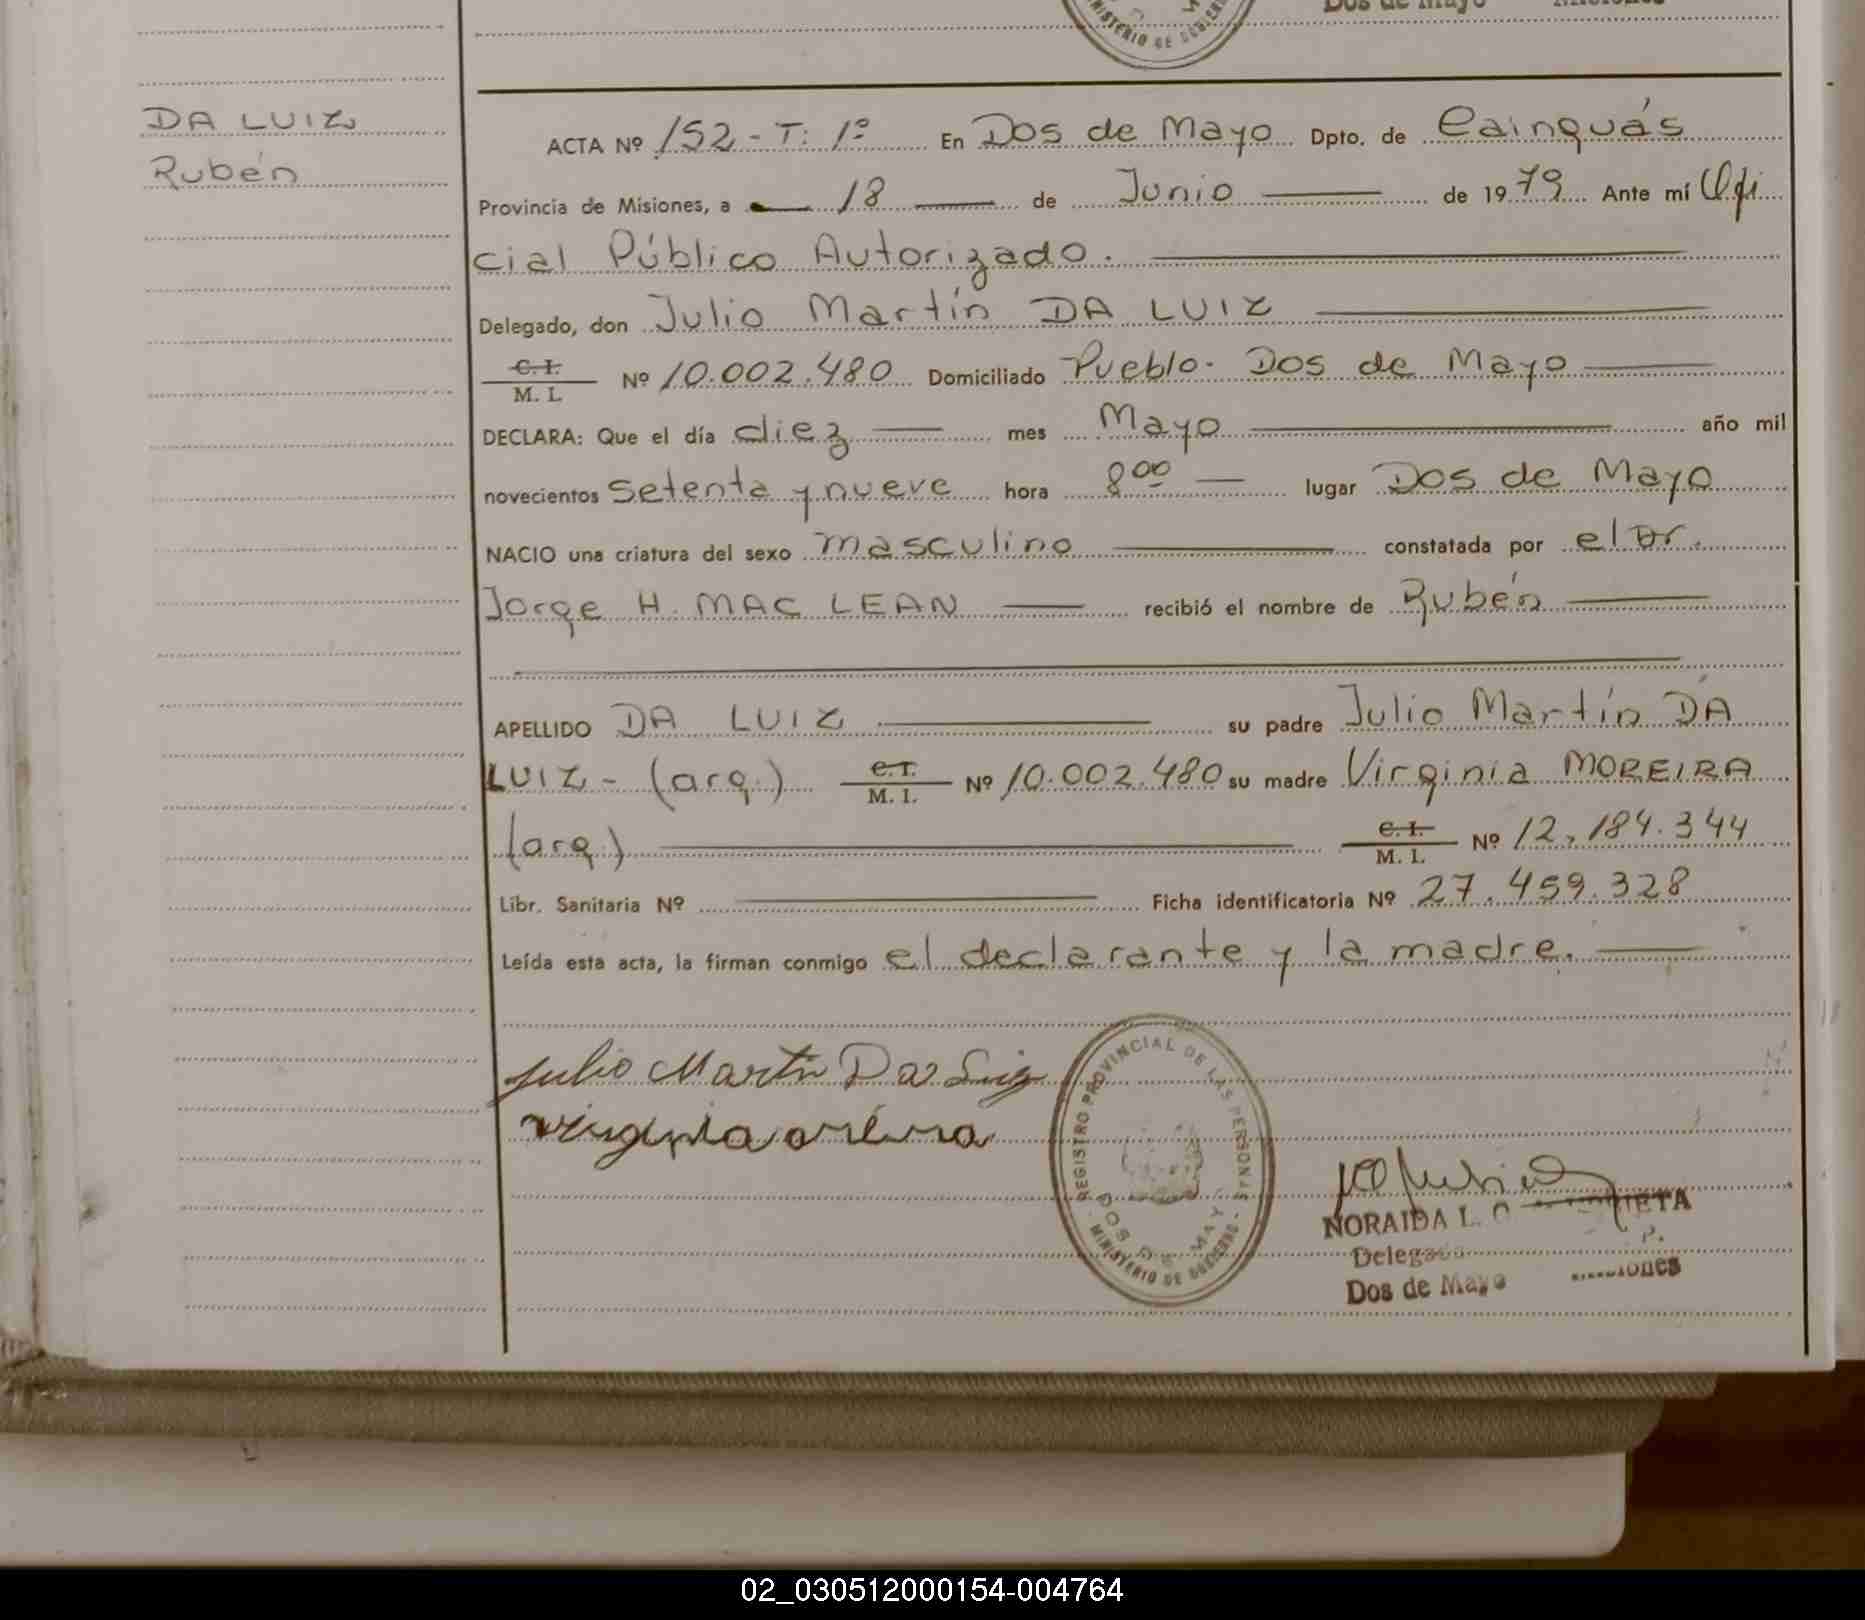 Dos de Mayo Misiones
MINISTERIO DE GOBIERNO
DA LUIZ
Rubén
ACTA Nº 152 - T: 1º En Dos de Mayo Dpto. de Cainguás
Provincia de Misiones, a 18 de Junio de 1979. Ante mí Ofi
cial Público Autorizado.
Delegado, don Julio Martín DA LUIZ
C. I. / M. I. Nº 10.002.480 Domiciliado Pueblo - Dos de Mayo
DECLARA: Que el día diez mes Mayo año mil
novecientos setenta y nueve hora 8 00 lugar Dos de Mayo
NACIO una criatura del sexo masculino constatada por el Dr.
Jorge H. MAC LEAN recibió el nombre de Rubén
APELLIDO DA LUIZ su padre Julio Martín DA
LUIZ - (arg.) C. I. / M. I. Nº 10.002.480 su madre Virginia MOREIRA
(arg.) C. I. / M. I. Nº 12.184.344
Libr. Sanitaria Nº Ficha identificatoria Nº 27.459.328
Leída esta acta, la firman conmigo el declarante y la madre.
Julio Martin Da Luiz
REGISTRO PROVINCIAL DE LAS PERSONAS
DOS DE MAYO
MINISTERIO DE GOBIERNO
NORAIDA L.
Delegada
Dos de Mayo Misiones
02_030512000154-004764